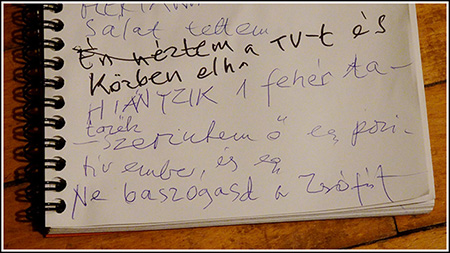 Salat tettem
Én néztem a TV-t és
Közben elh
HIÁNYZIK 1 fehér ta-
— szerintem ő egy pozi-
tív ember, és egy
Ne baszogasd a Zsófit